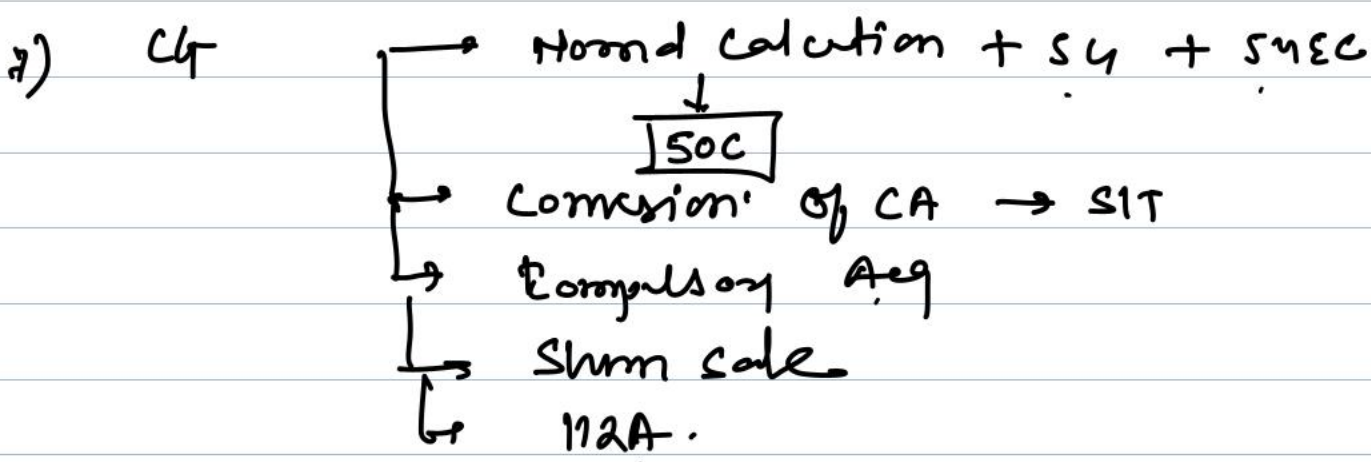 7) CG → Normal Calculation + 54 + 54EC
↓
50C
→ Conversion of CA → SIT
→ Compulsory Acq
→ Slum sale
→ 112A.